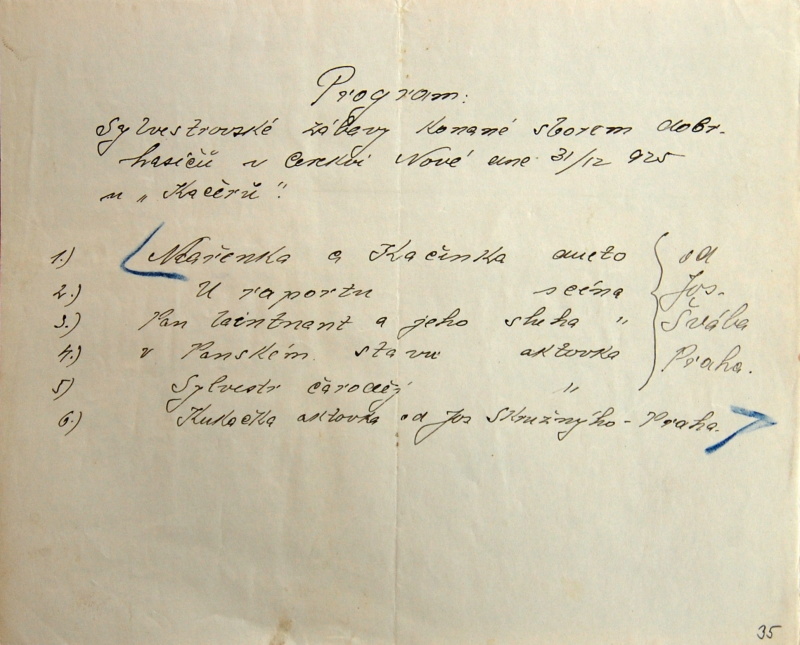 Program:
Sylvestrovské zábavy konané sborem dobr.
hasičů v Cerekvi Nové dne 31/12 925
u „Kačerů".
1.) Mařenka a Kačenka dueto
2.) U raportu scéna
3.) Pan laintnant a jeho sluha "
4.) v Panském stavu aktovka
5) Sylvestr čaroděj "
od
Jos.
Švába
Praha.
6.) Kukačka aktovka od Jos Skružnýho - Praha.
35